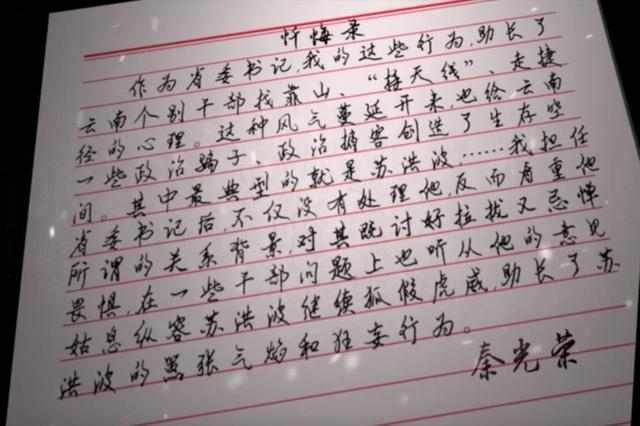 忏悔录
作为省委书记,我的这些行为,助长了
云南个别干部找靠山、“接天线”、走捷
径的心理。这种风气蔓延开来,也给云南
一些政治骗子、政治掮客创造了生存空
间。其中最典型的就是苏洪波,……我担任
省委书记后,不仅没有处理他反而看重他
所谓的关系背景,对其既讨好拉拔又忌惮
畏惧,在一些干部问题上也听从他的意见
姑息纵容苏洪波继续狐假虎威,助长了苏
洪波的嚣张气焰和狂妄行为。
秦光荣